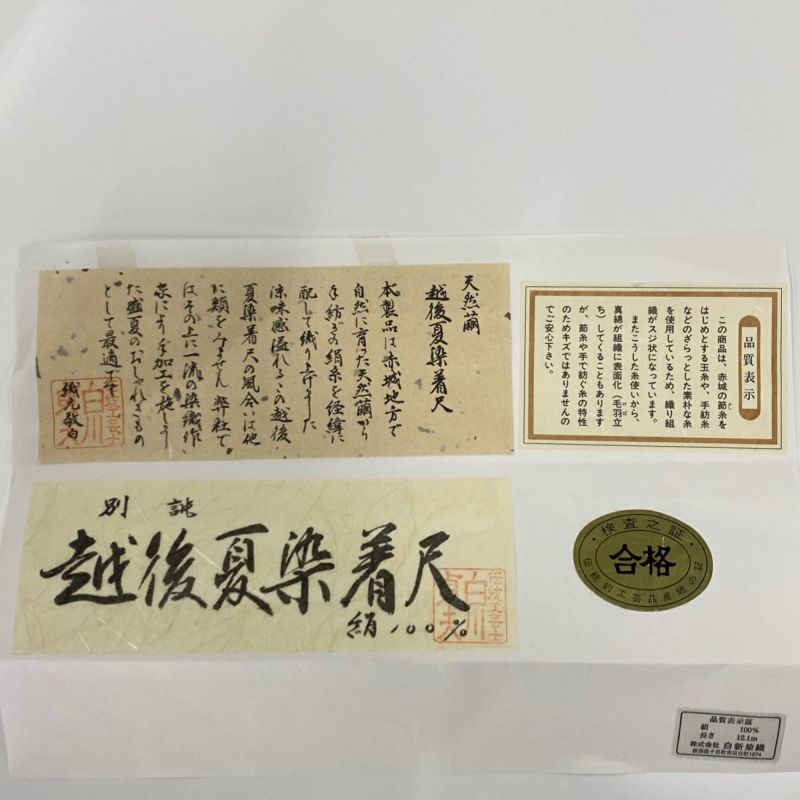 天然繭
越後夏染着尺
本製品は赤城地方で
自然に育った天然繭から
手紡ぎの絹糸を経緯に
配して織り上げました
涼味感溢れるこの越後
夏染着尺の風合いは他
に類をみません 弊社で
はその上に一流の染織作
家により手加工を施しまし
た盛夏のおしゃれきもの
として最適です
織元敬白
伝統工芸士
白川
品質表示
この商品は、赤城の節糸を
はじめとする玉糸や、手紡糸
などのざらっとした素朴な糸
を使用しているため、織り組
織がスジ状になっています。
またこうした糸使いから、
真綿が組織に表面化（毛羽立
ち）してくることもあります
が、節糸や手で紡ぐ糸の特性
のためキズではありませんの
でご安心下さい。
別誂
越後夏染着尺
絹一〇〇%
伝統工芸士
白川
検査之証
合格
伝統的工芸品産地の証
品質表示証
絹 100%
長さ 12.1m
株式会社 白新染織
新潟県十日町市四日町1674